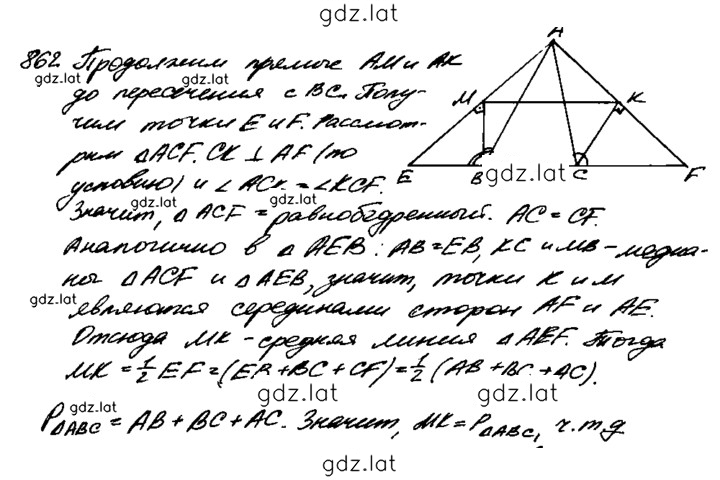 gdz.lat
862 Продолжим прямые AM и AK
gdz.lat gdz.lat
до пересечения с BC. Полу-
чим точки E и F. Рассмот-
рим △ACF. CK ⊥ AF (по
условию) и ∠ACK = ∠KCF.
gdz.lat gdz.lat
Значит, △ACF = равнобедренный. AC = CF.
Аналогично в △AEB: AB = EB, KC и MB - медиа-
ны △ACF и △AEB, значит, точки K и M
gdz.lat
являются серединами сторон AF и AE.
Отсюда MK - средняя линия △AEF. Тогда
MK = 1/2 EF = (EB + BC + CF) = 1/2 (AB + BC + AC).
gdz.lat gdz.lat gdz.lat
P△ABC = AB + BC + AC. Значит, MK = P△ABC, ч.т.д
gdz.lat
A
M K
E B C F
gdz.lat